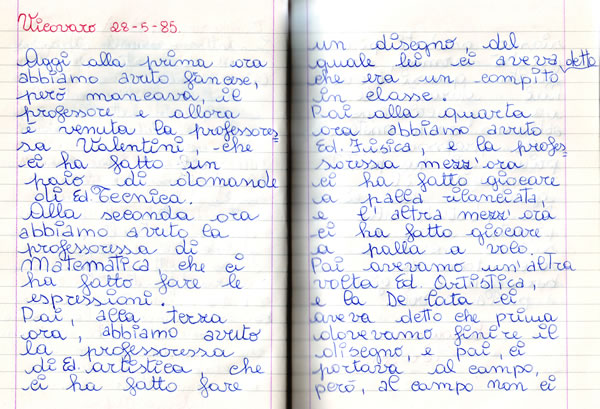 Vicovaro 28-5-85
Oggi alla prima ora
abbiamo avuto fancese,
però mancava, il
professore e allora
è venuta la professores=
sa Valentini, che
ci ha fatto un
paio di domande
di Ed. Tecnica.
Alla seconda ora
abbiamo avuto la
professoressa di
Matematica che ci
ha fatto fare le
espressioni.
Poi, alla terza
ora, abbiamo avuto
la professoressa
di Ed. artistica, che
ci ha fatto fare
un disegno, del
quale lei ci aveva detto
che era un compito
in classe.
Poi alla quarta
ora abbiamo avuto
Ed. Fisica, e la profes=
soressa mezz'ora
ci ha fatto giocare
a palla rilanciata,
e l'altra mezz'ora
ci ha fatto giocare
a palla a volo.
Poi avevamo un'altra
volta Ed. Artistica,
e la De Cata ci
aveva detto che prima
dovevamo finire il
disegno, e poi, ci
portava al campo,
però, al campo non ci